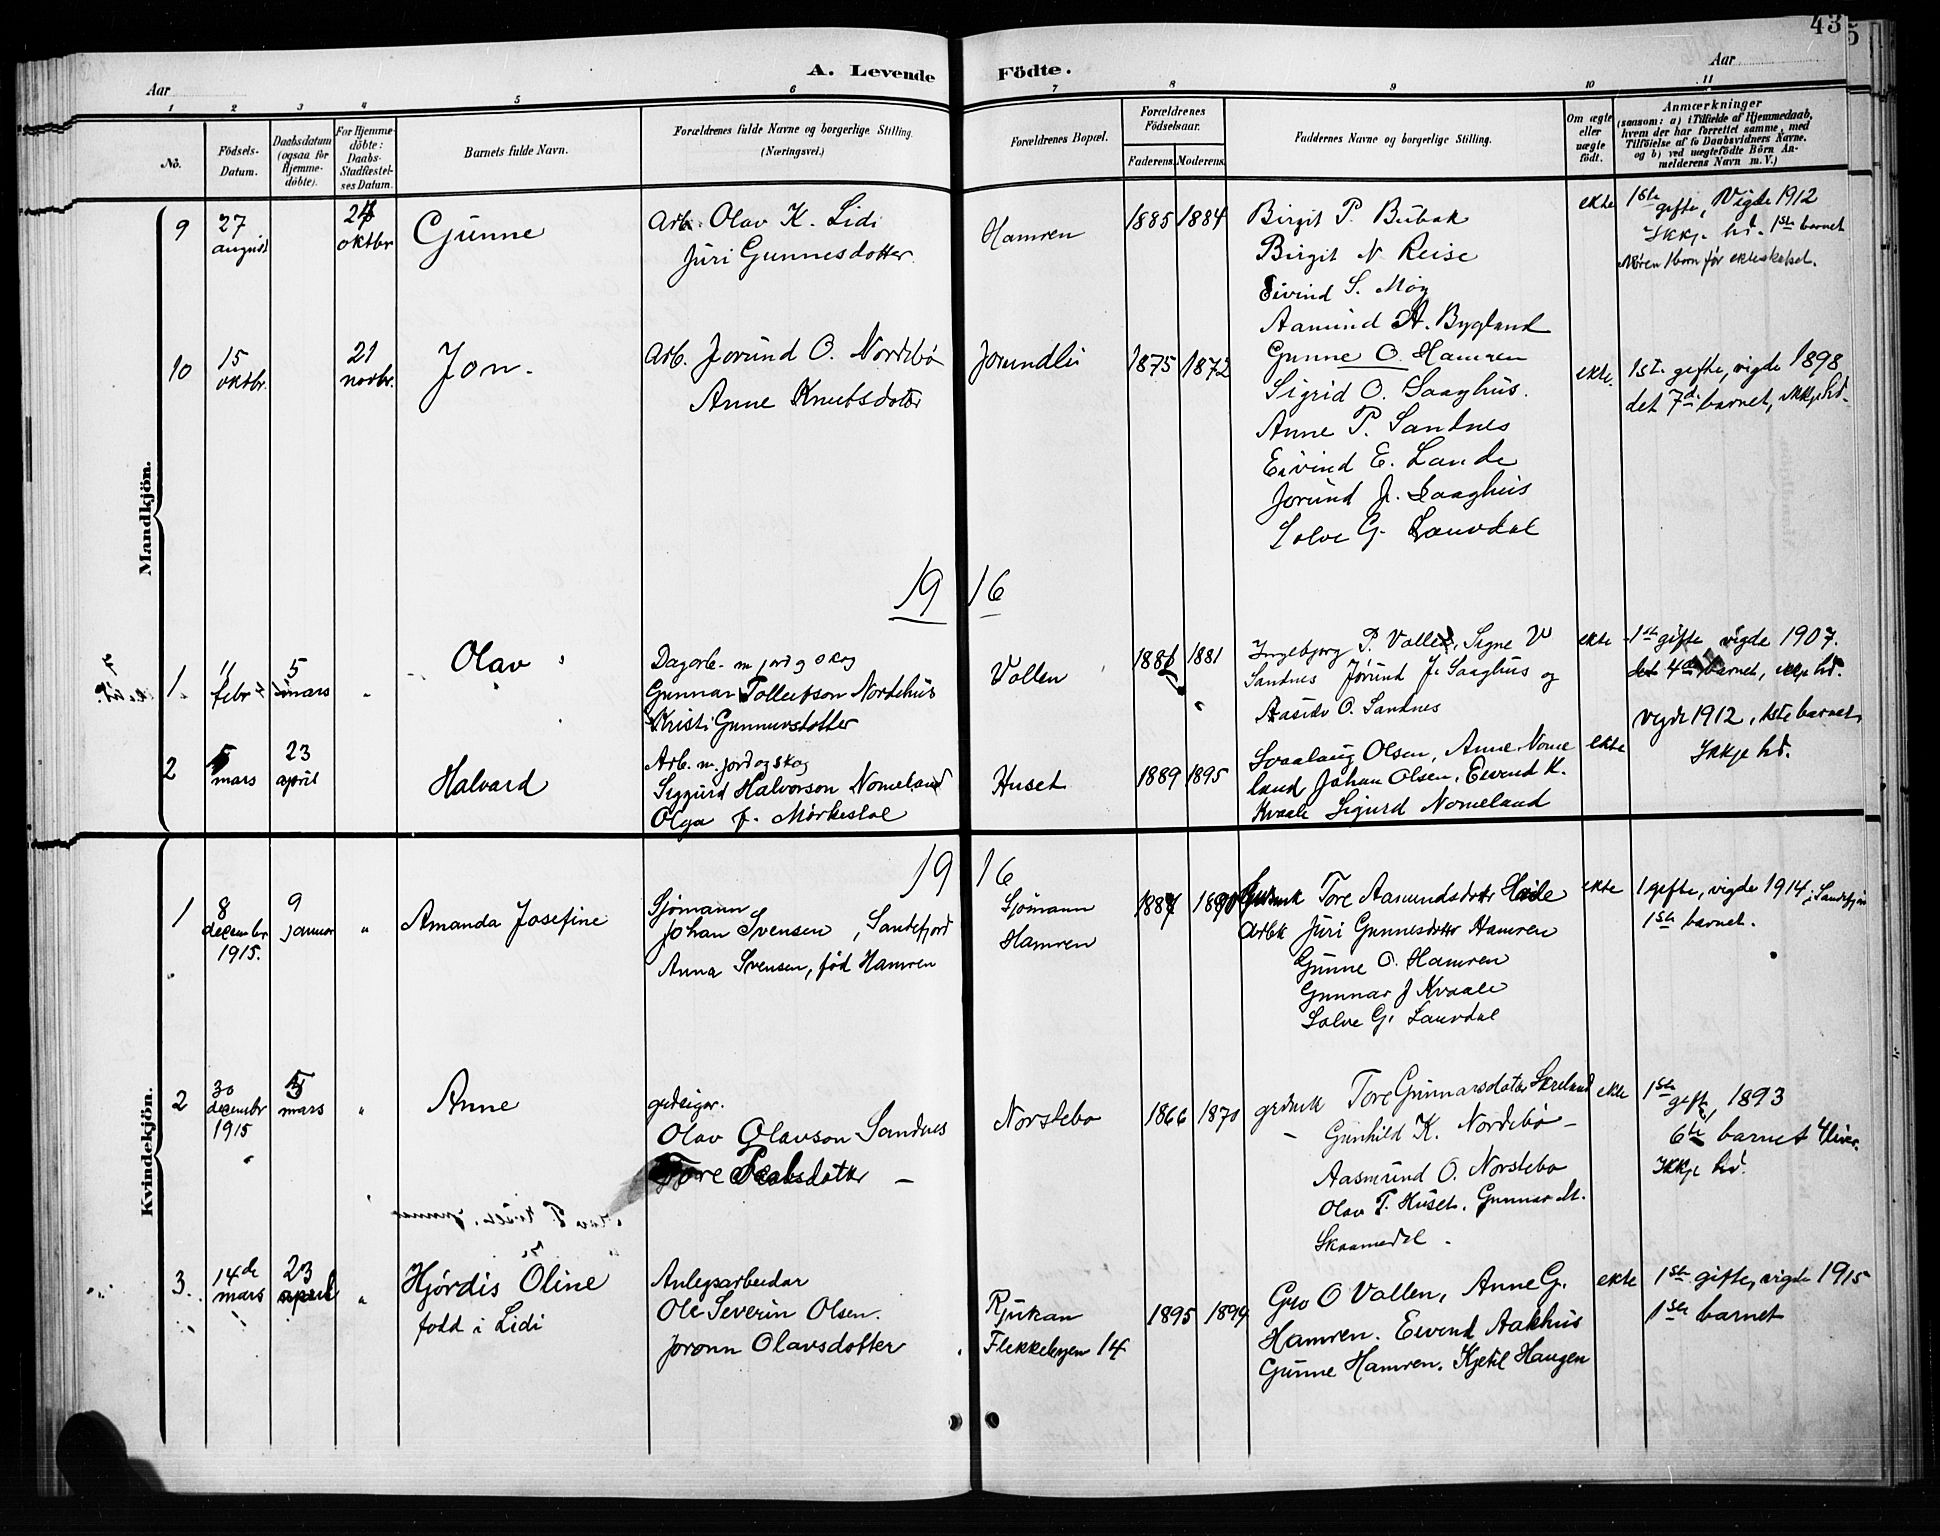 43
5
A. Levende Födte.
Aar
Aar
1 2 3 4 5 6 7 8 9 10 11
No.
Födsels-Datum.
Daabsdatum (ogsaa for Hjemmedöbte).
For Hjemmedöbte: Daabs-Stadfæstelses Datum.
Barnets fulde Navn.
Forældrenes fulde Navne og borgerlige Stilling. (Næringsvei.)
Forældrenes Bopæl.
Forældrenes Födselsaar.
Faderens. Moderens.
Faddernes Navne og borgerlige Stilling.
Om ægte eller uægte födt.
Anmærkninger
(saasom: a) i Tilfælde af Hjemmedaab,
hvem der har forrettet samme, med
Tilföielse af to Daabsvidners Navne.
og b) ved uægtefödte Börn An-
melderens Navn m. V.)
Mandkjön.
9 27 august 24 oktbr Gunne
Arb. Olav K. Lidi
Juri Gunnesdotter
Hamren 1885 1884
Birgit P. Bubak
Birgit N. Reise
Eivind S. Moy
Aamund A. Bygland
Gunne O. Hamren
ekte
1ste gifte, Vigde 1912
Ikkje hd. 1ste barnet
Moren 1 born før ekteskabet.
10 15 oktbr. 21 novbr. Jon.
Arb. Jorund O. Nordebø
Anne Knutsdotter
Jorundli 1875 1872
Sigrid O. Saaghus.
Anne P. Sandnes
Eivind E. Lande
Jorund J. Saaghus
Solve G. Lauvdal
ekte.
1ste gifte, vigde 1898
det 7de barnet, ikkje hd.
19 16
1 11 febr 5 mars " Olav
Dagarb. m jord og skog
Gunnar Tolleifson Nordehus
Kristi Gunnarsdotter
Vollen 1881
Ingebjorg P. Vallen, Signe V
Sandnes Jørund J. Saaghus og
Aasulv O. Sandnes
ekte
1ste gifte vigde 1907.
det 4de barnet, ikkje hd.
2 5 mars 23 april Halvard
Arb. m. jord og skog
Siggurd Halvorson Nomeland
Olga f. Mörkestøl
Huset 1889 1895
Svaalaug Olsen, Anne Nome
land Johan Olsen, Eivend K.
Kvaale Sigurd Nomeland
ekte
Vigde 1912, 1ste barnet
Ikkje hd.
Kvindekjön.
19 16
1 8 decembr 1915. 9 januar " Amanda Josefine
Sjømann
Johan Svensen, Sandefjord
Anna Svensen, fød Hamren
Sjømann
Hamren
1887 1890
Tore Aamundsdotter
Arbk Juri Gunnesdotter Hamren
Gunne O. Hamren
Gunnar J Kvaale
Solve G. Lauvdal
ekte
1 gifte, vigde 1914 i Sandefjord
1ste barnet.
2 30 decembr 1915 5 mars " Anne
gardeigar.
Olav Olavson Sandnes
Tore
Norstebø 1866 1870
Tore Gunnarsdoter Skreland
Gunhild K. Nordebø
Aasmund O. Norstebø
Olav T. Huset. Gunnar M.
Skaamedal.
ekte
1ste gifte, 1893
6te barnet 4 liver.
Ikkje hd.
3. 14de mars 23 april " Hjørdis Oline
fødd i Lidi
Anlegsarbeidar
Ole Severin Olsen.
Joronn Olavsdotter
Rjukan
Flekkebyen 14
1895 1894
Gro O Vollen, Anne G.
Hamren. Eivend Aakhus
Gunne Hamren. Kjetil Haugen
ekte
1ste gifte, vigde 1915
1ste barnet